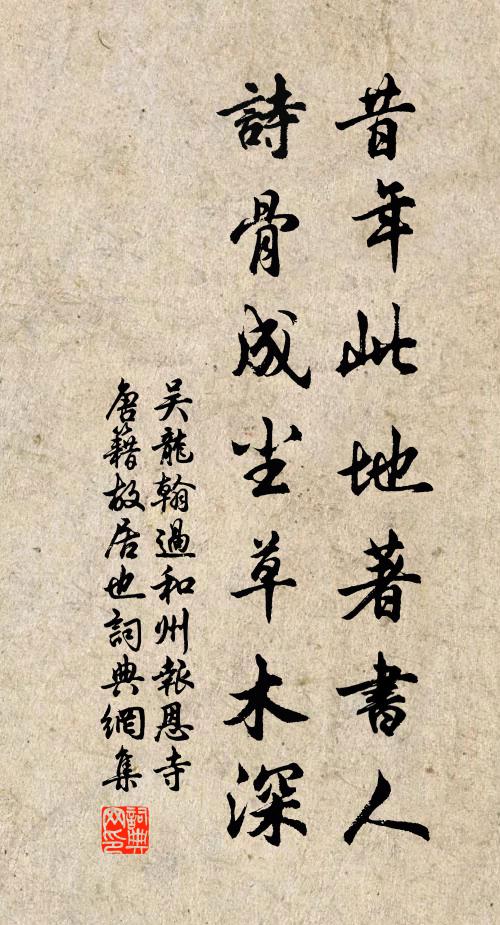 昔年此地著書人
詩骨成尘草木深
吴龍翰過和州報恩寺
唐籍故居也詞典網集
詞典
网印